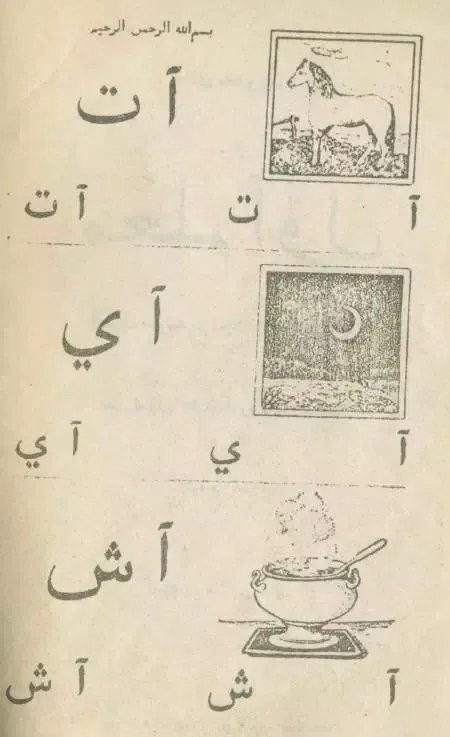 بسم‌الله الرحمن الرحیم
آ ت
آ ت آ ت
آ ي
آ ي آ ي
آ ش
آ ش آ ش